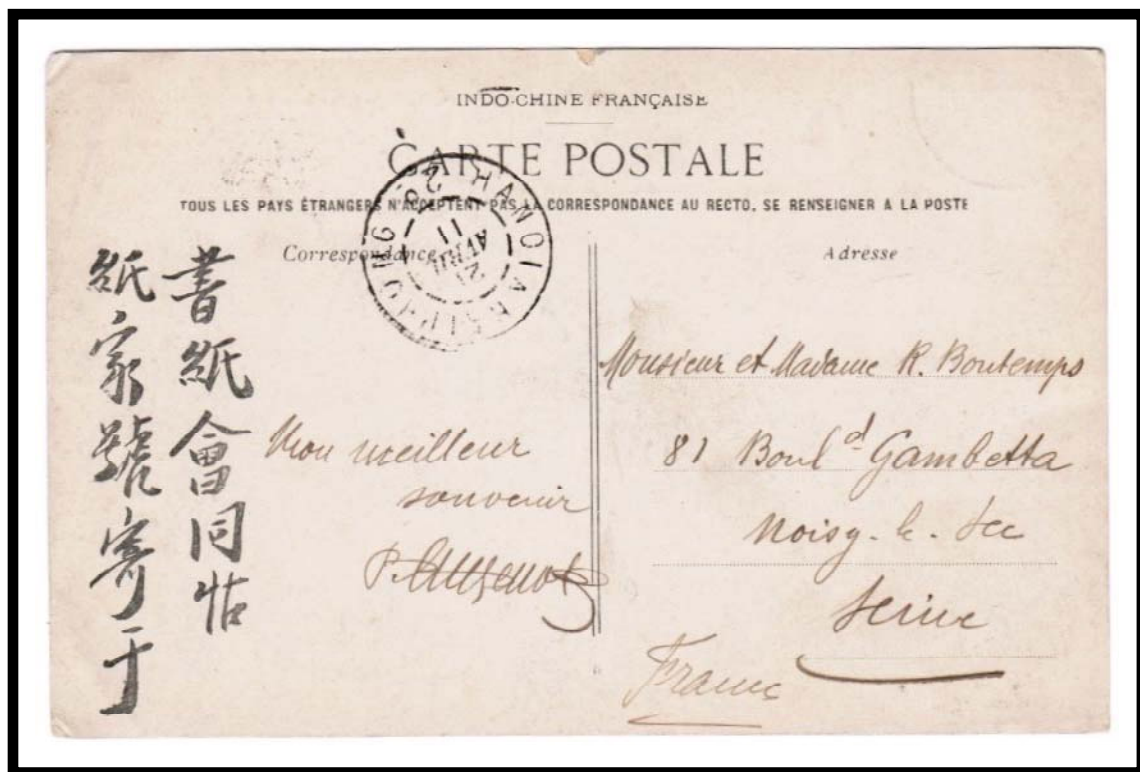 INDO-CHINE FRANÇAISE
CARTE POSTALE
TOUS LES PAYS ÉTRANGERS N'ACCEPTENT PAS LA CORRESPONDANCE AU RECTO, SE RENSEIGNER A LA POSTE
Correspondance
Adresse
HANOI A HAIPHONG
21
AVRIL
11
書紙會同
紙家號寄于
Mon meilleur
souvenir
Monsieur et Madame R. Boutemps
81 Boul^d Gambetta
Noisy-le-Sec
Seine
France